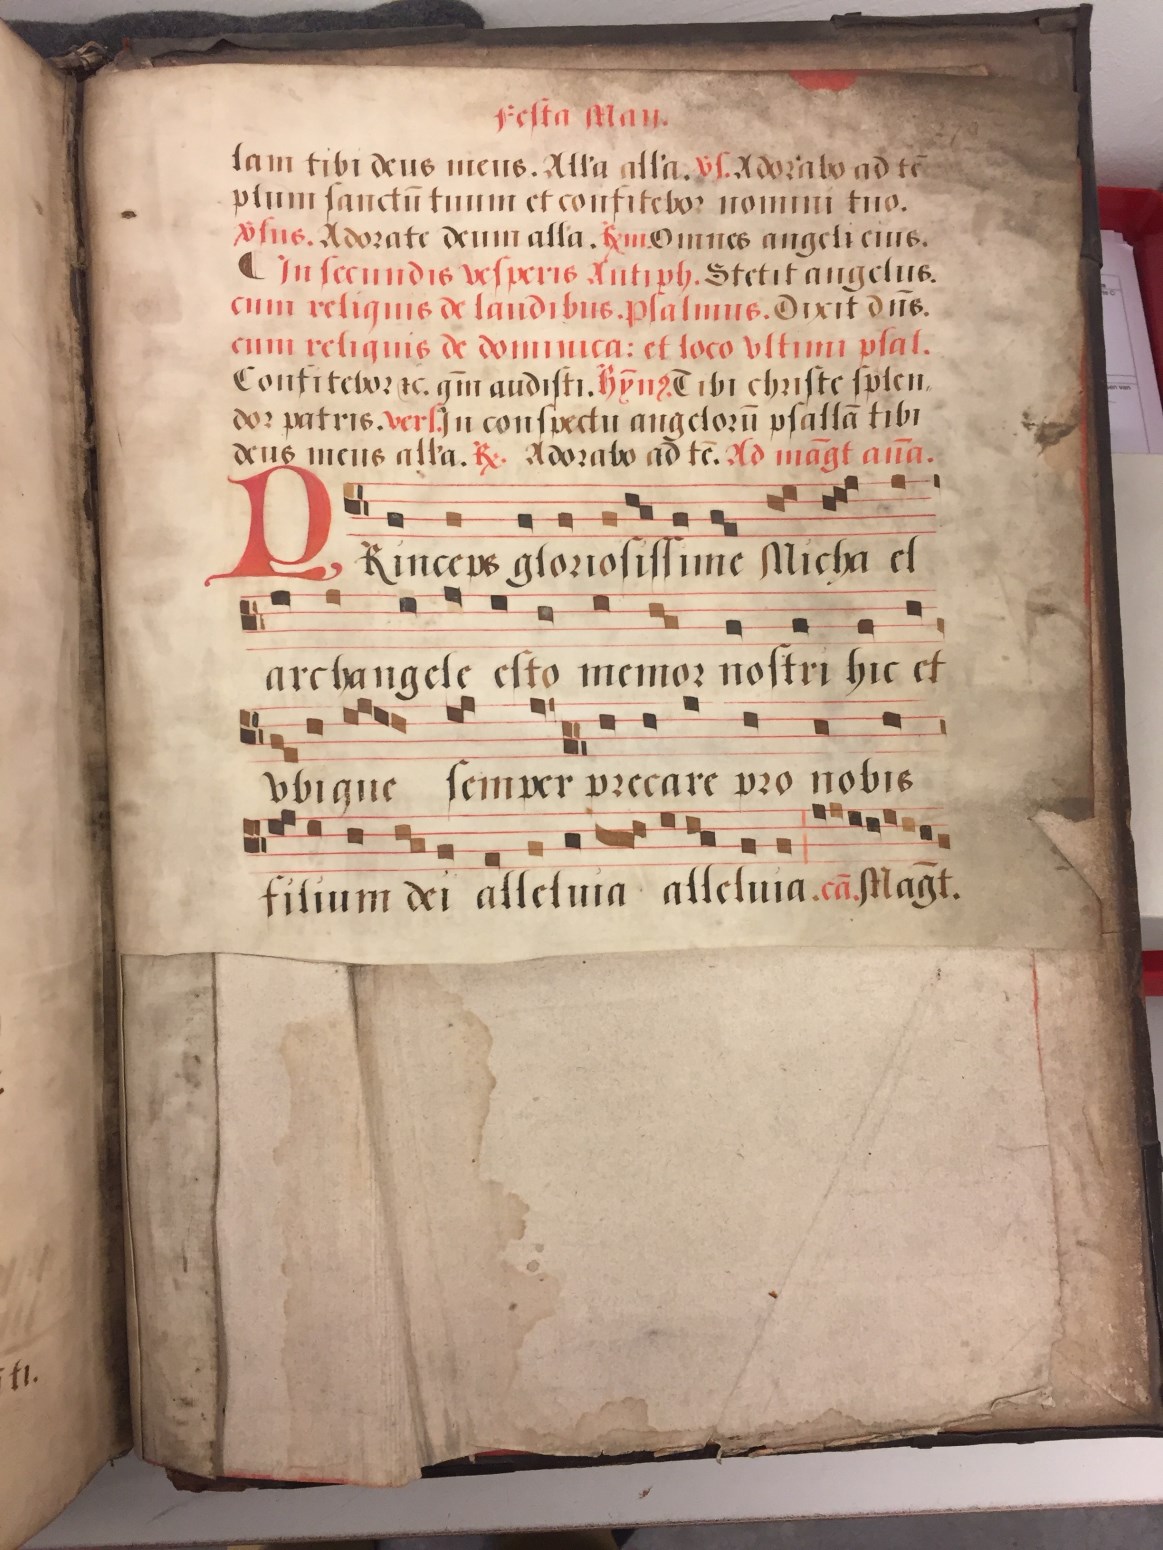 Festa Maii.
lam tibi deus meus. Alľa alľa. vs. Adorabo ad tē
plum sanctū tuum et confitebor nomini tuo.
vsus. Adorate deum alľa. Rm Omnes angeli eius.
In secundis vesperis Antiph. Stetit angelus.
cum reliquis de laudibus. psalmus. Dixit dn̄s.
cum reliquis de dominica: et loco vltimi psal.
Confitebor ꝛc. qm̄ audisti. Hȳnꝫ Tibi christe splen,
dor patris. vers. In conspectu angelorū psallā tibi
deus meus alľa. ℟. Adorabo ad tē. Ad māgt an̄a.
PRinceps gloriosissime Micha el
archangele esto memor nostri hic et
vbique semper precare pro nobis
filium dei alleluia alleluia. cā. Māgt.
ti.